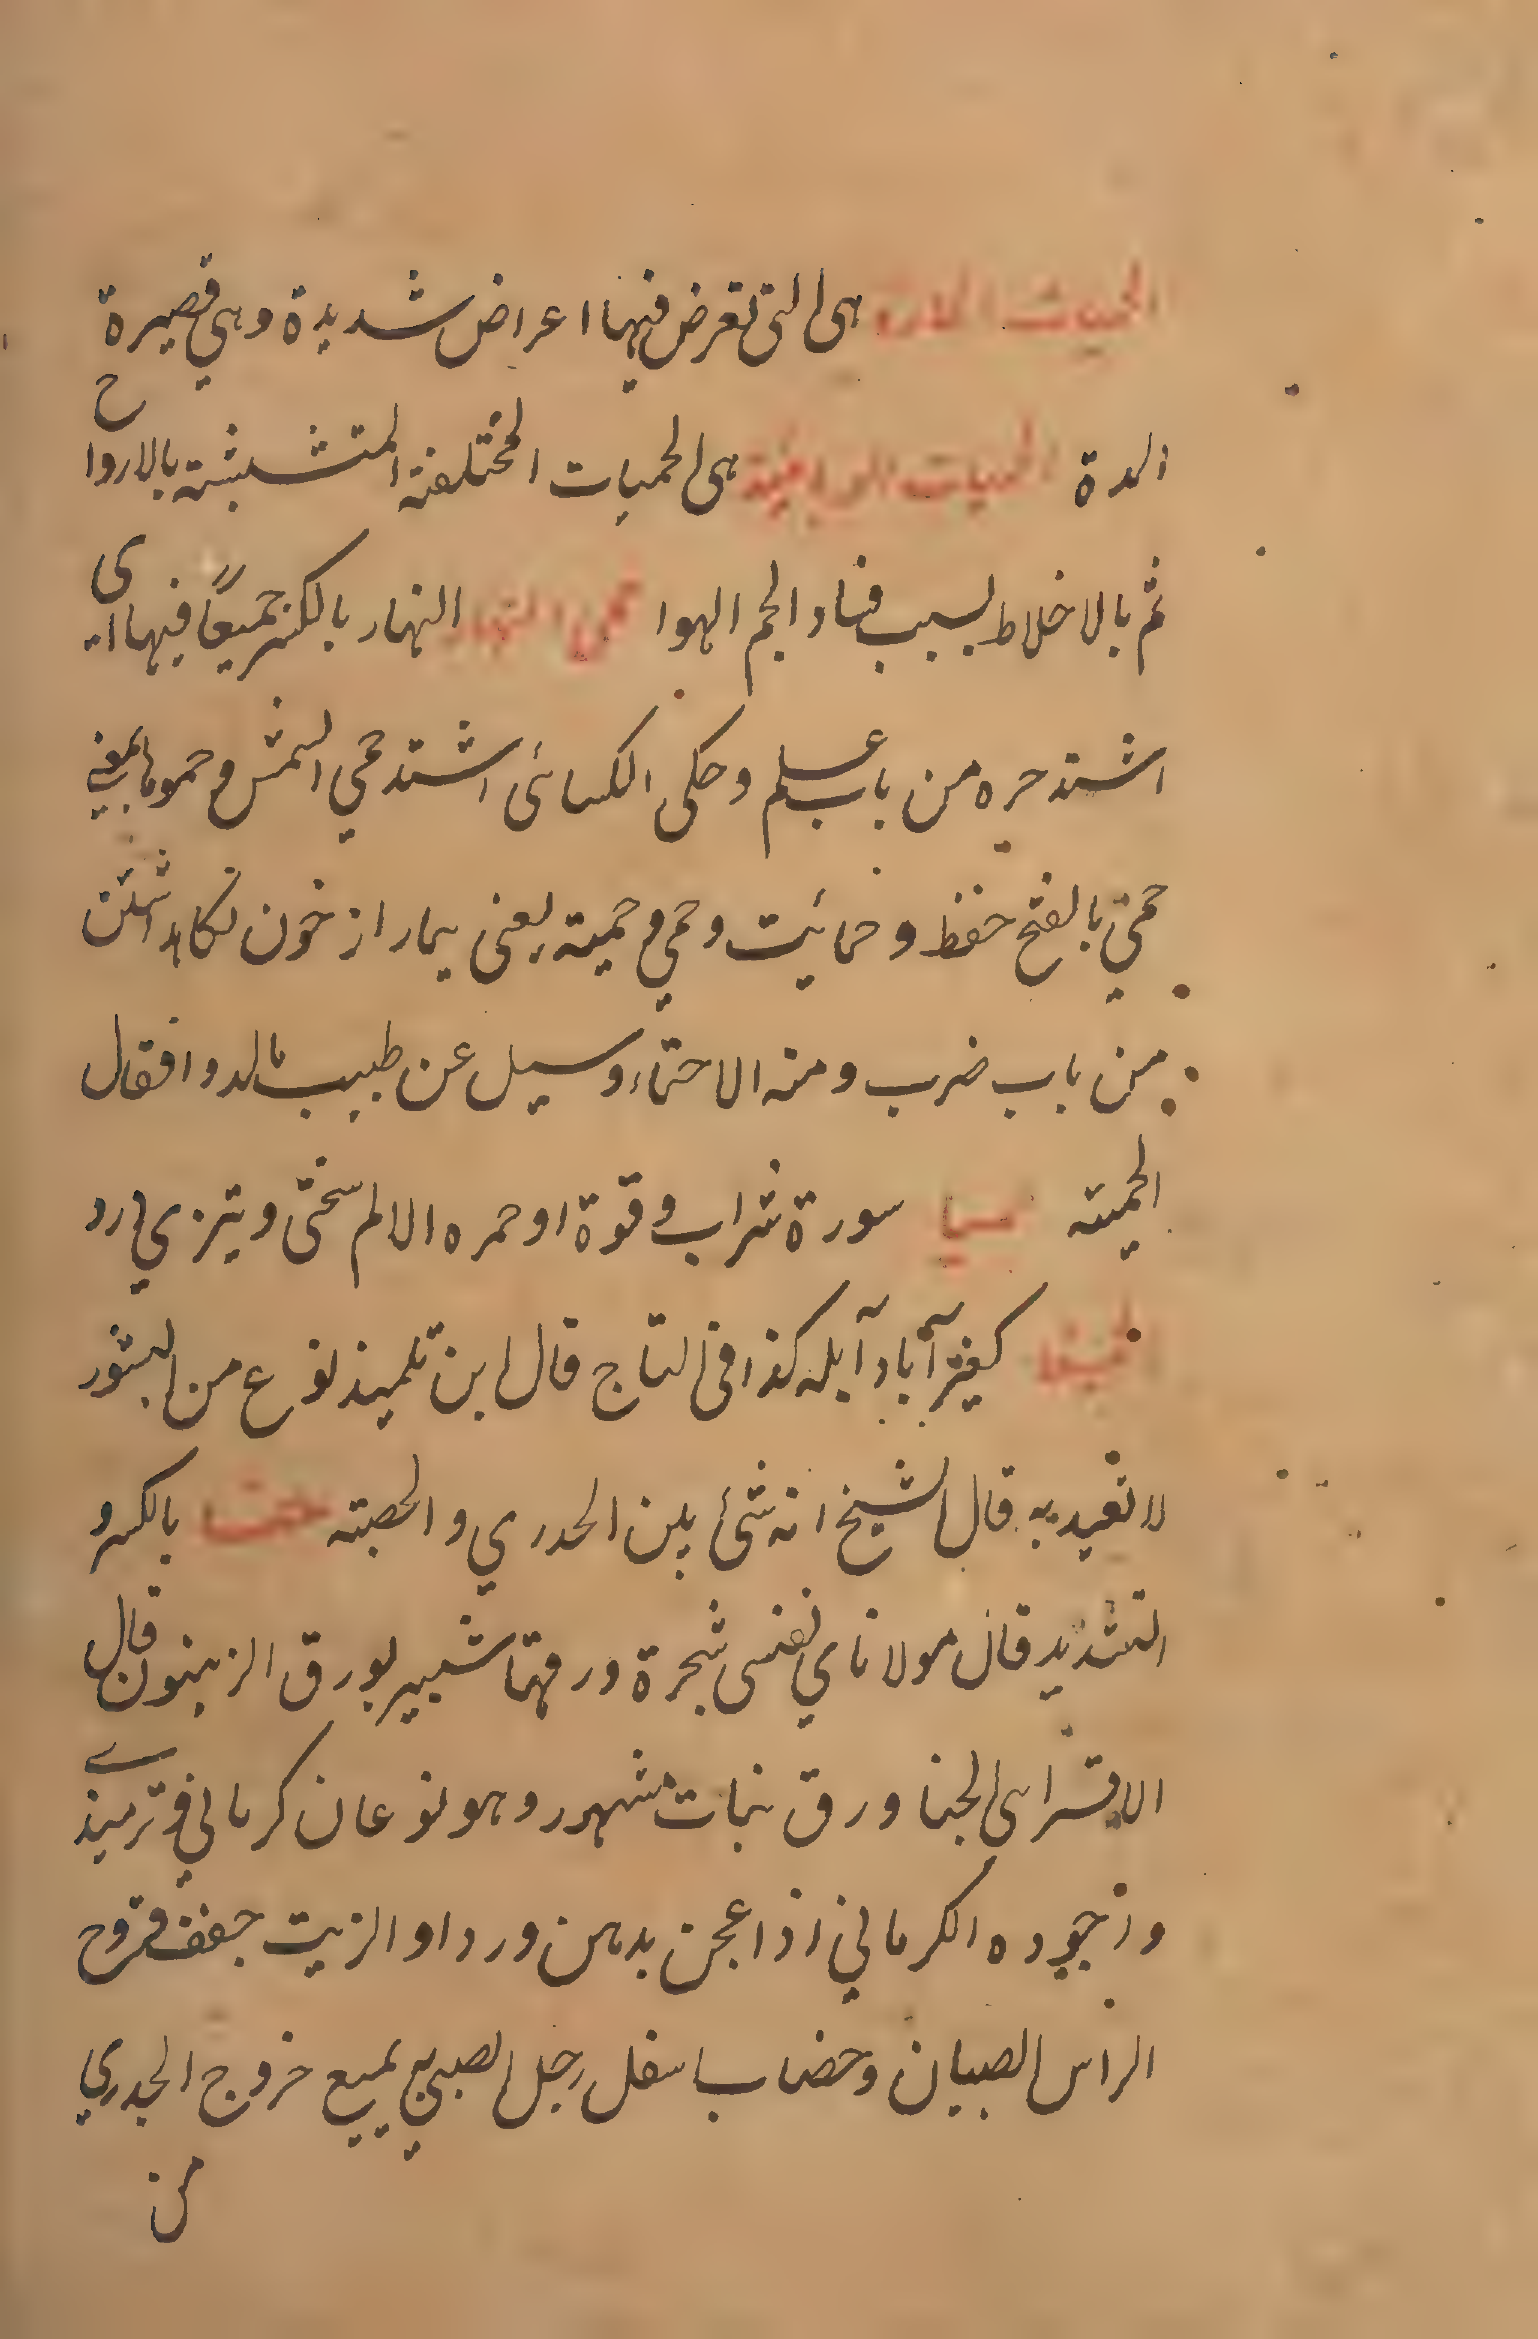 الحميات الحارة هى التى تعرض فيها اعراض شديدة وهي قصيرة
المدة الحميات الوبائية هى الحميات المختلفة المتشبثة بالارواح
ثم بالاخلاط بسبب فساد الجم الهوا حمى النهار النهار بالكسر جميعًا فيها اى
اشتد حره من باب علم وحكى الكسائى اشتد حمي الشمس وحموها بمعنى
حمى بالفتح حفظ وحمائيت وحمي وحمية يعنى بيمار از خون نكاهداشتن
من باب ضرب ومنه الاحتماء وسيل عن طبيب بالدوا فقال
الحمية حميا سورة شراب وقوة او حمره الالم سختى وتيزي دارد
الحميقا كغبيرآباد آبله كذا فى التاج قال ابن تلميذ نوع من البثور
لا تعيد به قال الشيخ انه شئ بين الجدري والحصبته حنا بالكسر و
التشديد قال مولاناي نفسى شجرة ورقها شبيه بورق الزيتون قال
الاقسرائى الحنا ورق نبات مشهور وهو نوعان كرماني و ترميذے
واجوده الكرماني اذا عجن بدهن ورد او الزيت جفف قروح
الراس الصبيان وخضاب اسفل رجل الصبي يمنع خروج الجدري
من